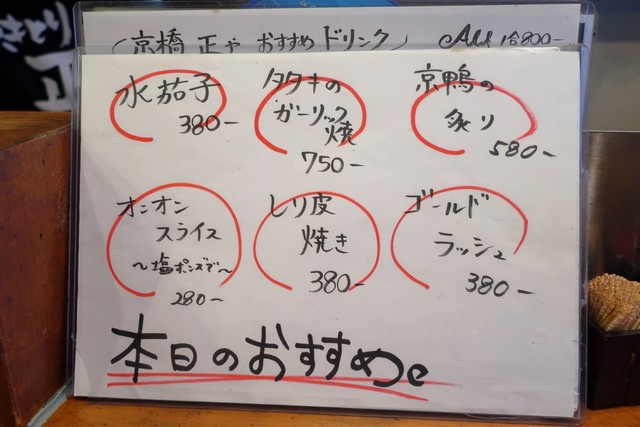 きとり
正
(京橋 正や おすすめ ドリンク) ALL 1合800-
水茄子
380-
タタキの
ガーリック
焼
750-
京鴨の
炙り
580-
オニオン
スライス
〜塩ポンズで〜
280-
しり皮
焼き
380-
ゴールド
ラッシュ
380-
本日のおすすめ